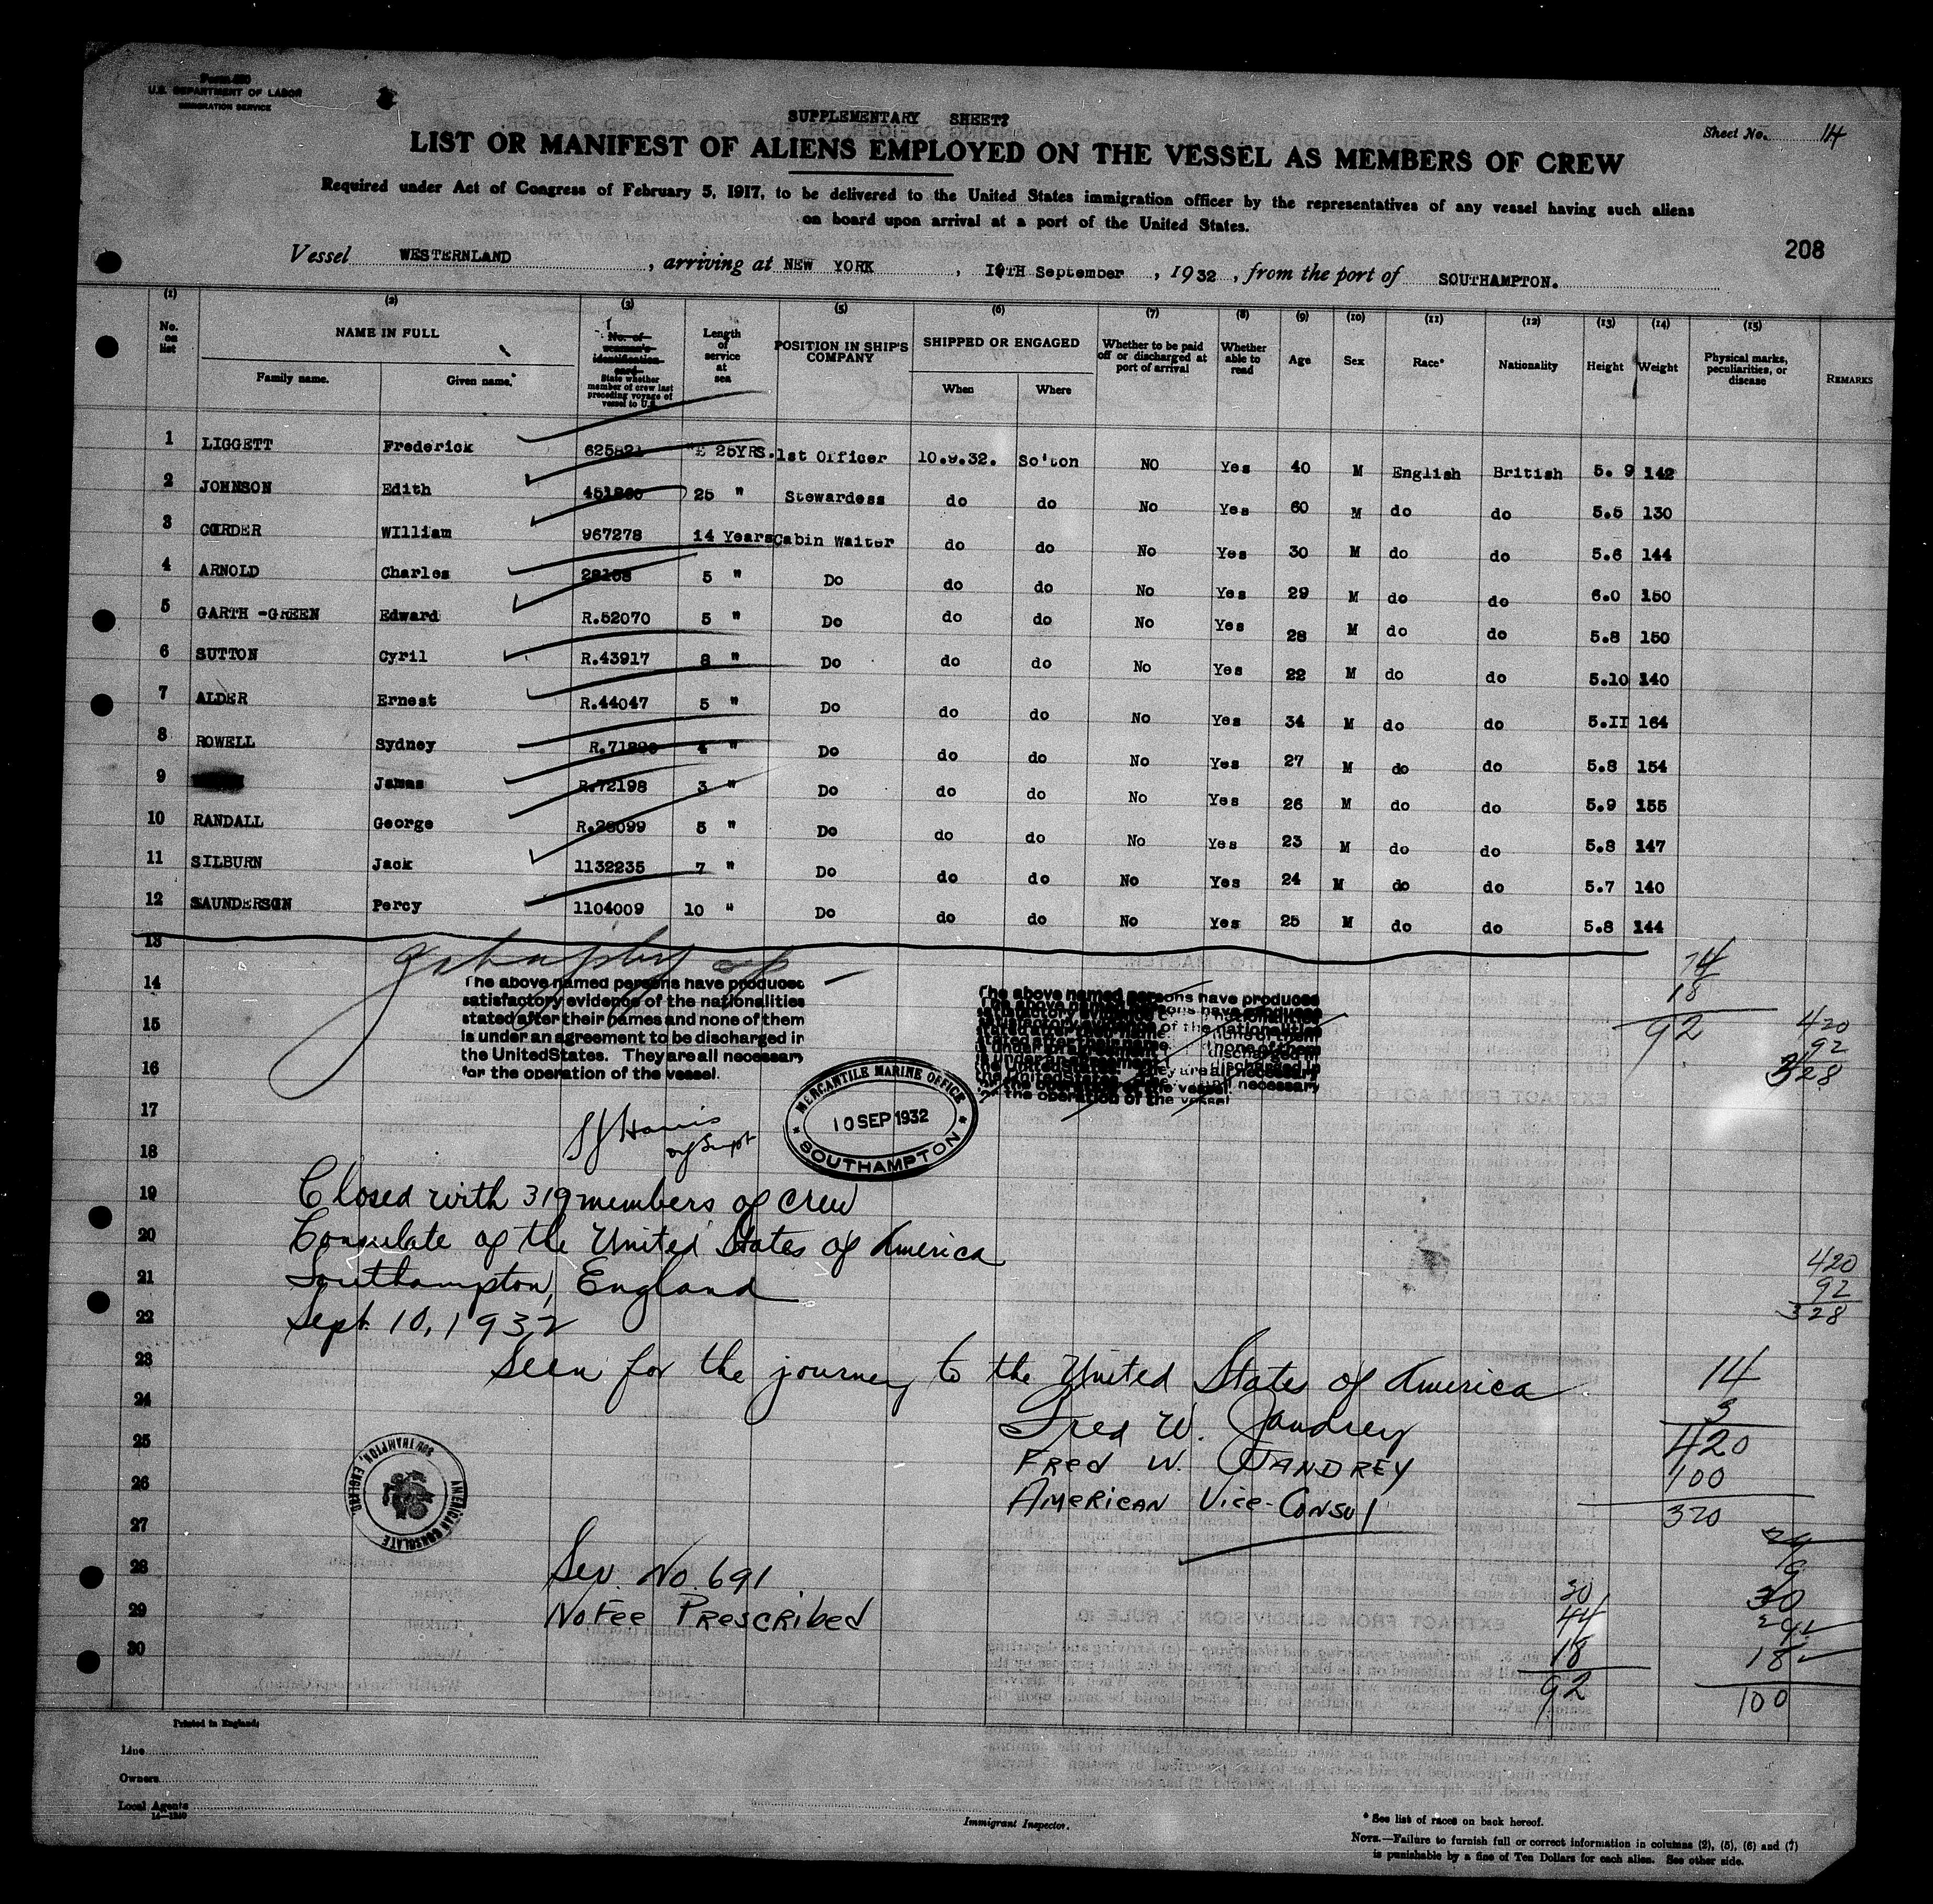 Form 680
U.S. DEPARTMENT OF LABOR
IMMIGRATION SERVICE
SUPPLEMENTARY SHEET
Sheet No. 14
LIST OR MANIFEST OF ALIENS EMPLOYED ON THE VESSEL AS MEMBERS OF CREW
Required under Act of Congress of February 5, 1917, to be delivered to the United States immigration officer by the representatives of any vessel having such aliens
on board upon arrival at a port of the United States.
208
Vessel WESTERNLAND, arriving at NEW YORK, 19TH September, 1932, from the port of SOUTHAMPTON.
(1) (2) (3) (5) (6) (7) (8) (9) (10) (11) (12) (13) (14) (15)
No. on list NAME IN FULL Family name. Given name. No. of seaman's identification card State whether member of crew last preceding voyage of vessel to U.S. Length of service at sea POSITION IN SHIP'S COMPANY SHIPPED OR ENGAGED When Where Whether to be paid off or discharged at port of arrival Whether able to read Age Sex Race* Nationality Height Weight Physical marks, peculiarities, or disease REMARKS
1 LIGGETT Frederick 625821 25YRS. 1st Officer 10.9.32. So'ton NO Yes 40 M English British 5. 9 142
2 JOHNSON Edith 25 " Stewardess do do No Yes 60 M do do 5.5 130
3 CORDER WIlliam 967278 14 Years Cabin Waiter do do No Yes 30 M do do 5.6 144
4 ARNOLD Charles 5 " Do do do No Yes 29 M do do 6.0 150
5 GARTH -GREEN Edward R.52070 5 " Do do do No Yes 28 M do do 5.8 150
6 SUTTON Cyril R.43917 8 " Do do do No Yes 22 M do do 5.10 140
7 ALDER Ernest R.44047 5 " Do do do No Yes 34 M do do 5.II 164
8 ROWELL Sydney 4 " Do do do No Yes 27 M do do 5.8 154
9 James R.72198 3 " Do do do No Yes 26 M do do 5.9 155
10 RANDALL George R.28099 5 " Do do do No Yes 23 M do do 5.8 147
11 SILBURN Jack 1132235 7 " Do do do No Yes 24 M do do 5.7 140
12 SAUNDERSON Percy 1104009 10 " Do do do No Yes 25 M do do 5.8 144
13
14
15
16
17
18
19
20
21
22
23
24
25
26
27
28
29
30
The above named persons have produced
satisfactory evidence of the nationalities
stated after their names and none of them
is under an agreement to be discharged in
the United States. They are all necessary
for the operation of the vessel.
The above named persons have produced
74
18
92
420
92
328
MERCANTILE MARINE OFFICE
10 SEP 1932
SOUTHAMPTON
Closed with 319 members of crew
Consulate of the United States of America
Southampton, England
Sept. 10, 1932
420
92
328
Seen for the journey to the United States of America
Fred W. Jandrey
FRed W. JANDREY
AMERICAN Vice-Consul
AMERICAN CONSULATE
SOUTHAMPTON, ENGLAND
14
3
420
100
320
Ser. No. 691
No Fee PRescribed
30
44
18
92
18
100
Printed in England.
Line
Owners
Local Agents
Immigrant Inspector.
* See list of races on back hereof.
NOTE.—Failure to furnish full or correct information in columns (2), (5), (6) and (7)
is punishable by a fine of Ten Dollars for each alien. See other side.